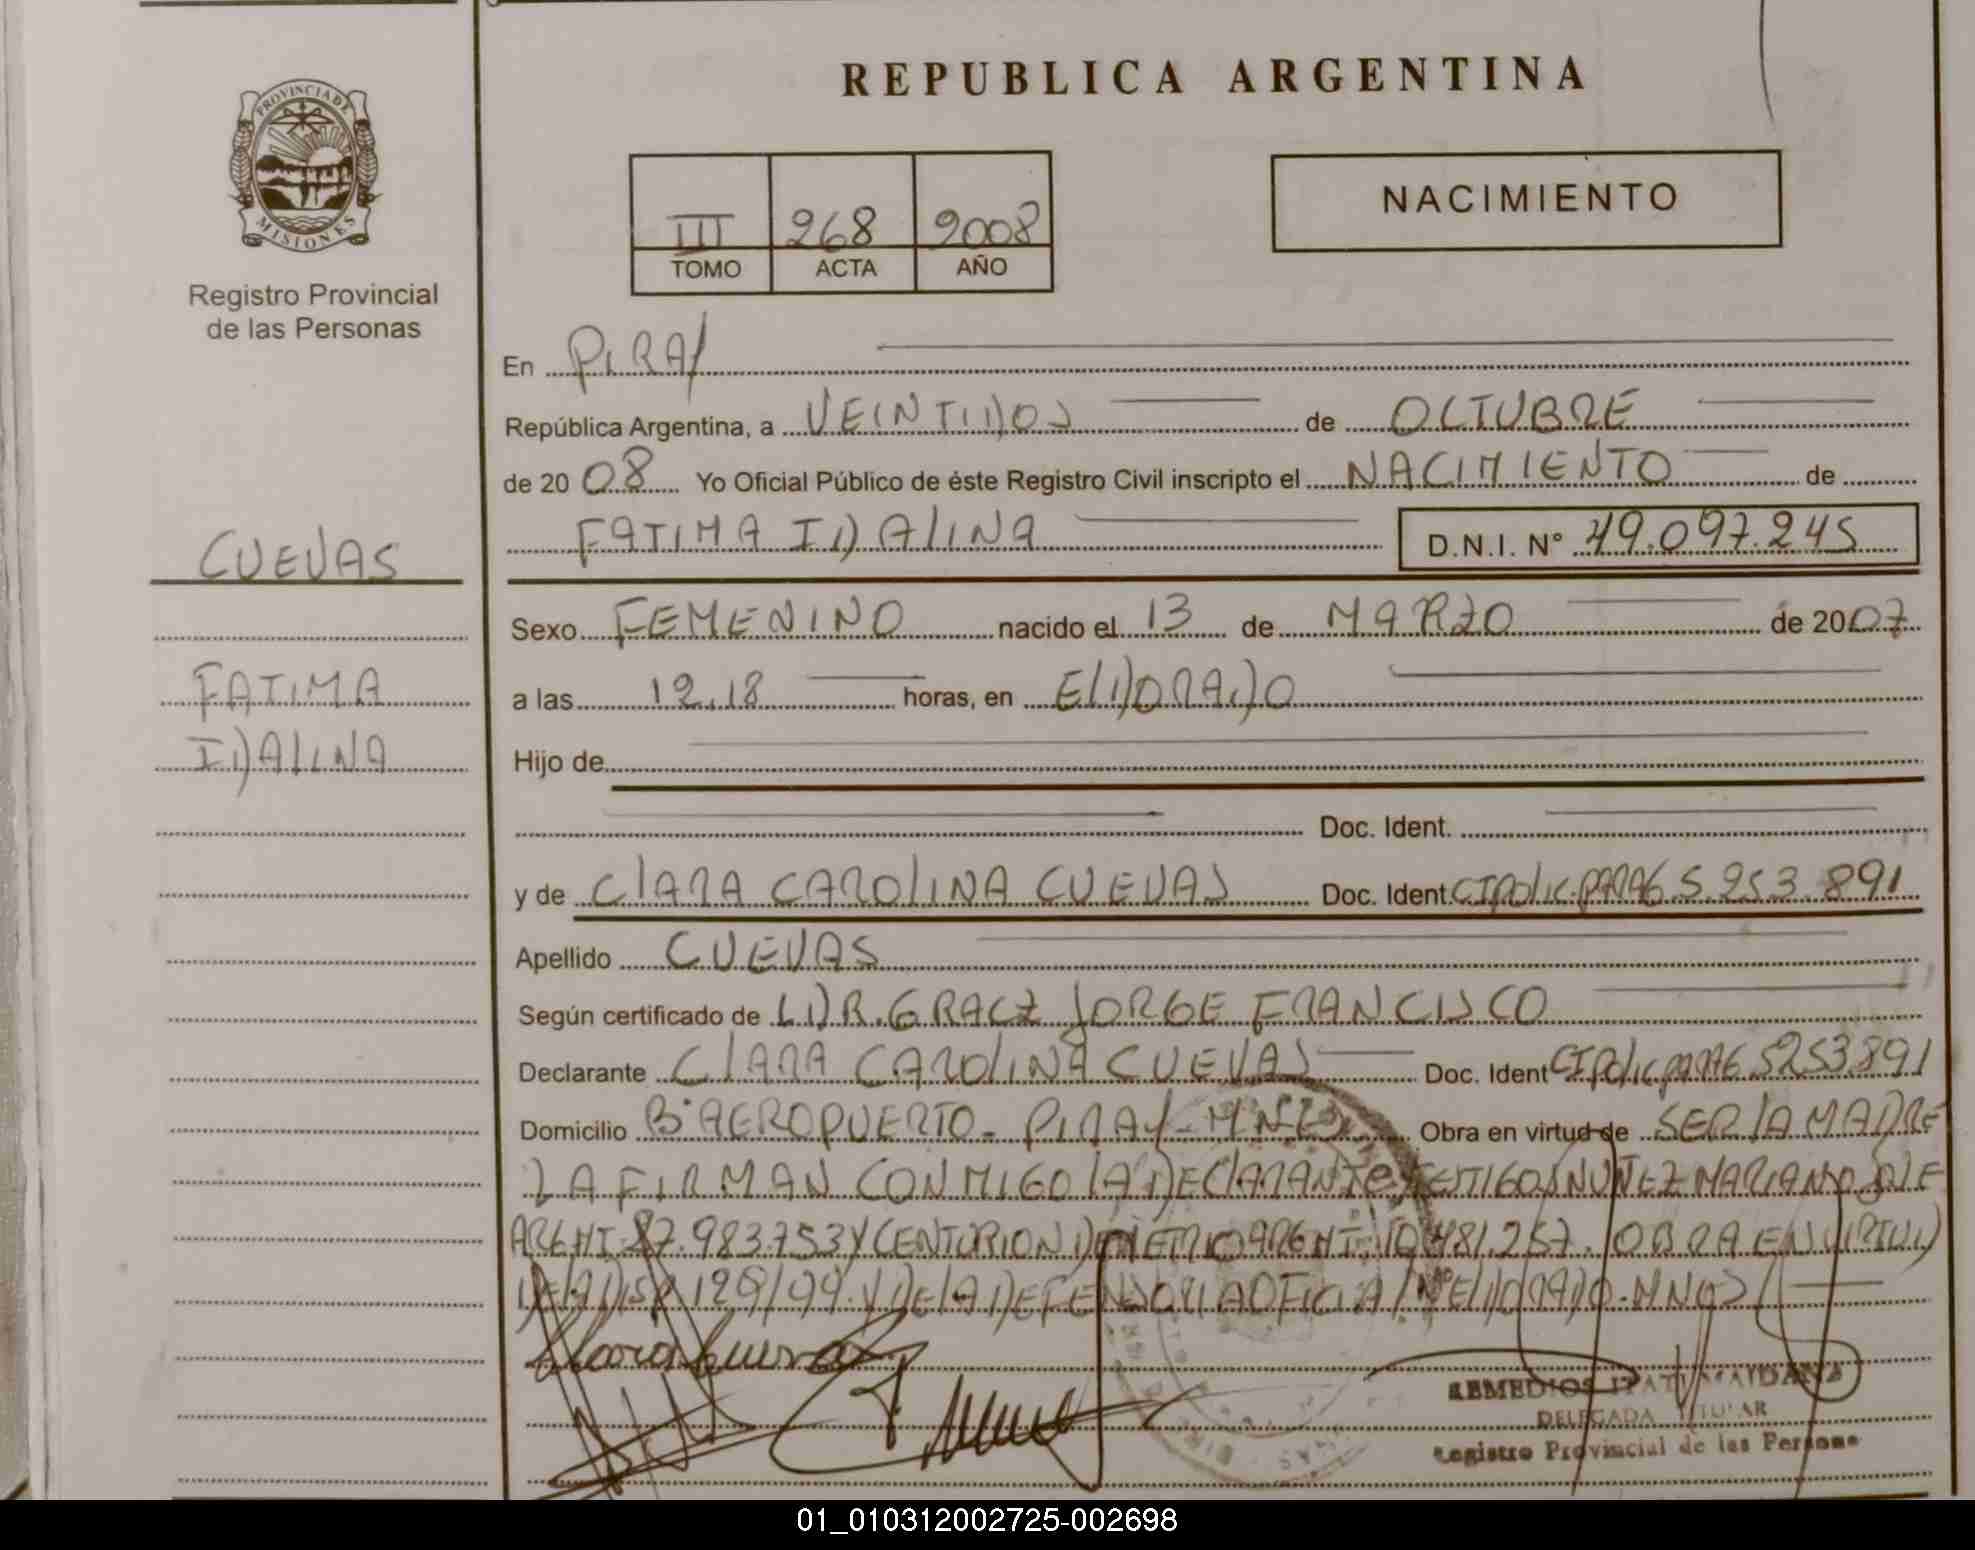 REPUBLICA ARGENTINA
PROVINCIA DE
MISIONES
Registro Provincial
de las Personas
III 268 2008
TOMO ACTA AÑO
NACIMIENTO
En PIRAY
República Argentina, a VEINTIDOS de OCTUBRE
de 2008 Yo Oficial Público de éste Registro Civil inscripto el NACIMIENTO de
FATIMA IDALINA D.N.I. Nº 49.097.245
CUEVAS
FATIMA
IDALINA
Sexo FEMENINO nacido el 13 de MARZO de 2007
a las 12,18 horas, en ELDORADO
Hijo de
Doc. Ident.
y de CLARA CAROLINA CUEVAS Doc. Ident. CIPOLIC.PARAG 5.253.891
Apellido CUEVAS
Según certificado de LDR. GRACZ JORGE FRANCISCO
Declarante CLARA CAROLINA CUEVAS Doc. Ident CIPOLIC PARAG 5253891
Domicilio Bº AEROPUERTO - PIRAY - MNES Obra en virtud de SER LA MADRE
LA FIRMAN CONMIGO LA DECLARANTE TESTIGOS NUÑEZ MARIANO
ARGNT 27.983.753 Y CENTURION DEMETRIO ARGNT 10.481.257. OBRA EN VIRTUD
DE LA DISP 129/99 Y DE LA DEFENSORIA OFICIAL ELDORADO - MNES
REMEDIOS ITATI MAIDANA
DELEGADA TITULAR
Registro Provincial de las Personas
01_010312002725-002698